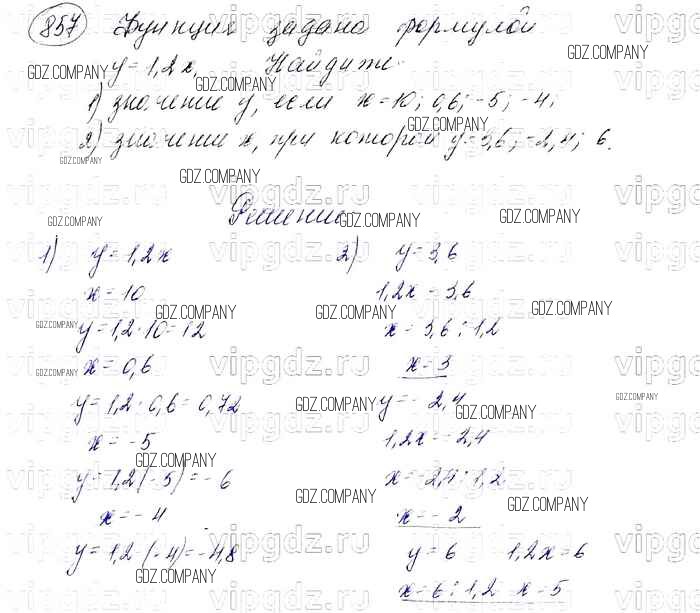 857 Функция задана формулой
y = 1,2x. Найдите
1) значение y, если x = 10; 0,6; -5; -4;
2) значение x, при котором y = 3,6; -2,4; 6.
Решение
1) y = 1,2x
x = 10
y = 1,2 · 10 = 12
x = 0,6
y = 1,2 · 0,6 = 0,72
x = -5
y = 1,2 (-5) = -6
x = -4
y = 1,2 (-4) = -4,8
2) y = 3,6
1,2x = 3,6
x = 3,6 : 1,2
x = 3
y = -2,4
1,2x = -2,4
x = -2,4 : 1,2
x = -2
y = 6 1,2x = 6
x = 6 : 1,2 x = 5
GDZ.COMPANY
vipgdz.ru